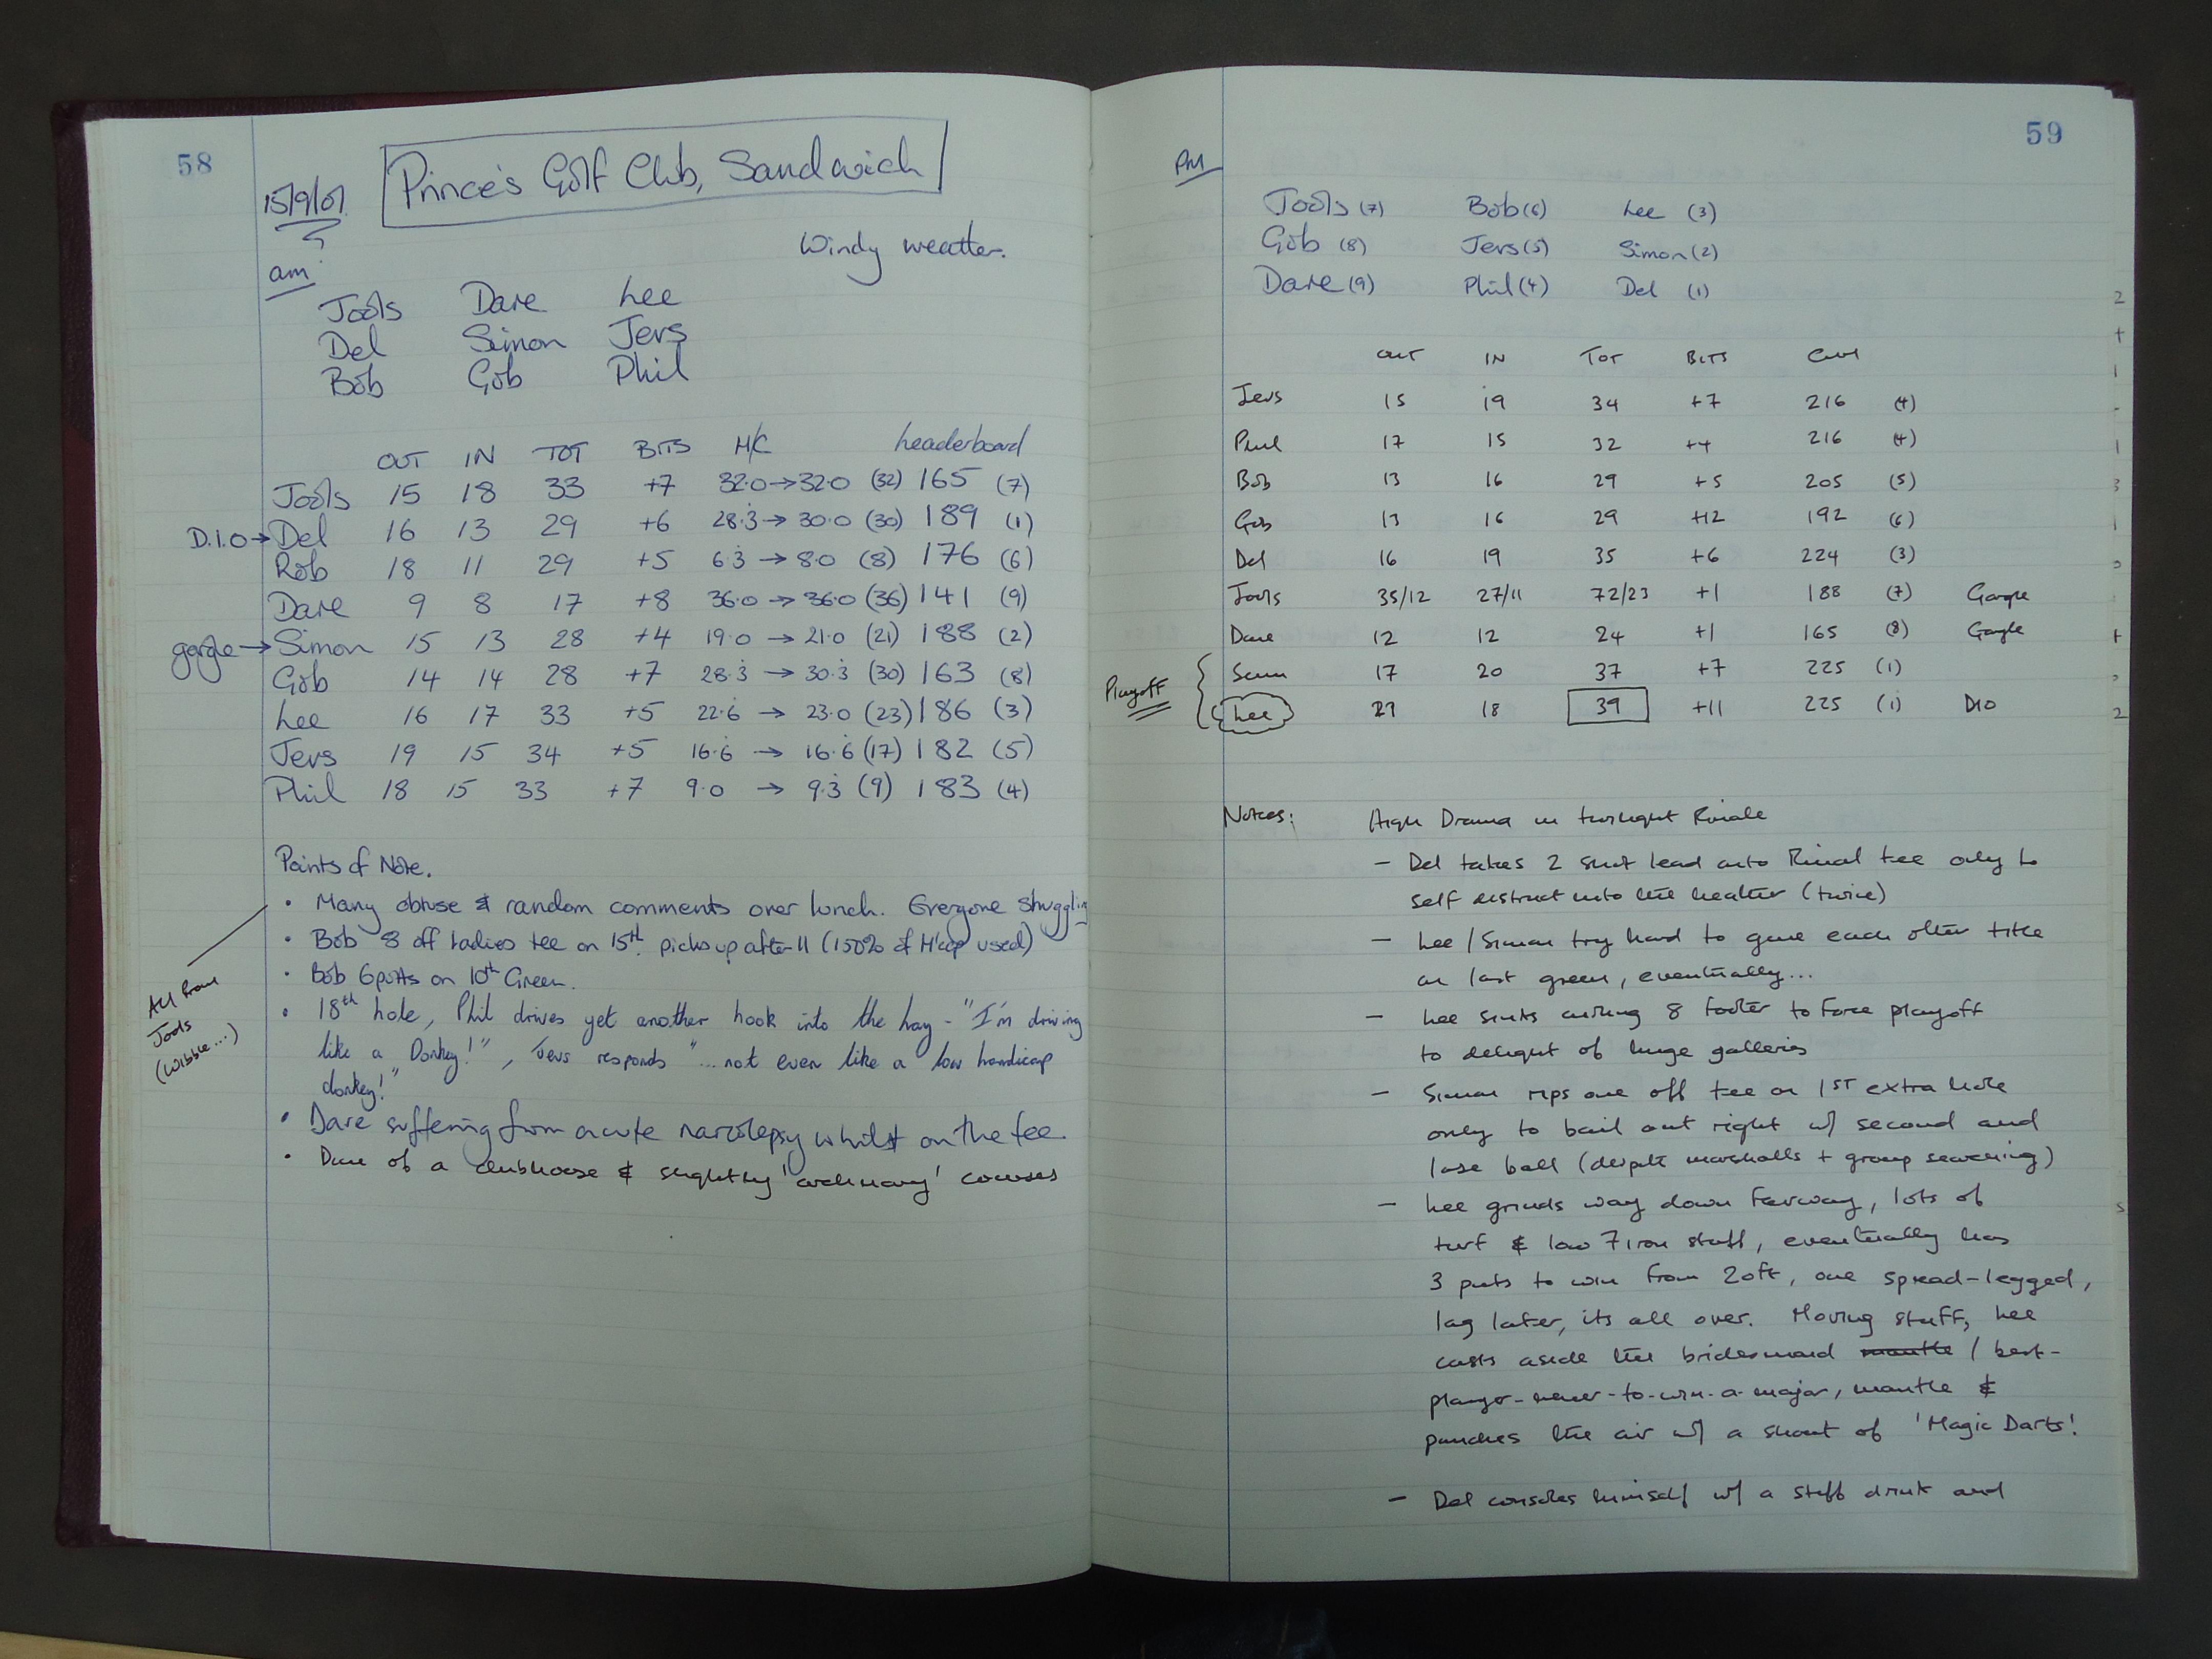 58
15/9/07
Prince's Golf Club, Sandwich
Windy weather.
am
Jools Dave Lee
Del Simon Jevs
Bob Gob Phil
OUT IN TOT BITS H/C Leaderboard
Jools 15 18 33 +7 32.0→32.0 (32) 165 (7)
D.I.O→Del 16 13 29 +6 28.3→30.0 (30) 189 (1)
Rob 18 11 29 +5 6.3→8.0 (8) 176 (6)
Dave 9 8 17 +8 36.0→36.0 (36) 141 (9)
gargle→Simon 15 13 28 +4 19.0→21.0 (21) 188 (2)
Gob 14 14 28 +7 28.3→30.3 (30) 163 (8)
Lee 16 17 33 +5 22.6→23.0 (23) 186 (3)
Jevs 19 15 34 +5 16.6→16.6 (17) 182 (5)
Phil 18 15 33 +7 9.0→9.3 (9) 183 (4)
Points of Note.
• Many obtuse & random comments over lunch. Everyone struggling
• Bob 8 off ladies tee on 15th. picks up after 11 (150% of H'cap used)
• Bob 6 putts on 10th Green.
• 18th hole, Phil drives yet another hook into the hay - "I'm driving
like a Donkey!", Jevs responds "...not even like a low handicap
donkey!"
• Dave suffering from acute narcolepsy whilst on the tee.
• Dave of a clubhouse & slightly 'ordinary' courses
All from
Jools
(wibble...)
59
PM
Jools (7) Bob (6) Lee (3)
Gob (8) Jevs (5) Simon (2)
Dave (9) Phil (4) Del (1)
OUT IN TOT BITS CUM
Jevs 15 19 34 +7 216 (4)
Phil 17 15 32 +4 216 (4)
Bob 13 16 29 +5 205 (5)
Gob 13 16 29 +12 192 (6)
Del 16 19 35 +6 224 (3)
Jools 35/12 27/11 72/23 +1 188 (7) Gargle
Dave 12 12 24 +1 165 (8) Gargle
Simon 17 20 37 +7 225 (1)
Playoff
Lee 21 18 39 +11 225 (1) DIO
Notes: High Drama in twilight Finale
- Del takes 2 shot lead onto Final tee only to
self destruct into the heather (twice)
- Lee / Simon try hard to give each other title
on last green, eventually...
- Lee sinks curling 8 footer to Force playoff
to delight of huge galleries
- Simon rips one off tee on 1ST extra hole
only to bail out right w/ second and
lose ball (despite marshalls + group searching)
- Lee grinds way down Fairway, lots of
turf & low 7 iron stuff, eventually has
3 putts to win from 20ft, one spread-legged,
lag later, its all over. Moving stuff, Lee
casts aside the bridesmaid mantle / best-
player-never-to-win-a-major, mantle &
punches the air w/ a shout of 'Magic Darts!'
- Del consoles himself w/ a stiff drink and